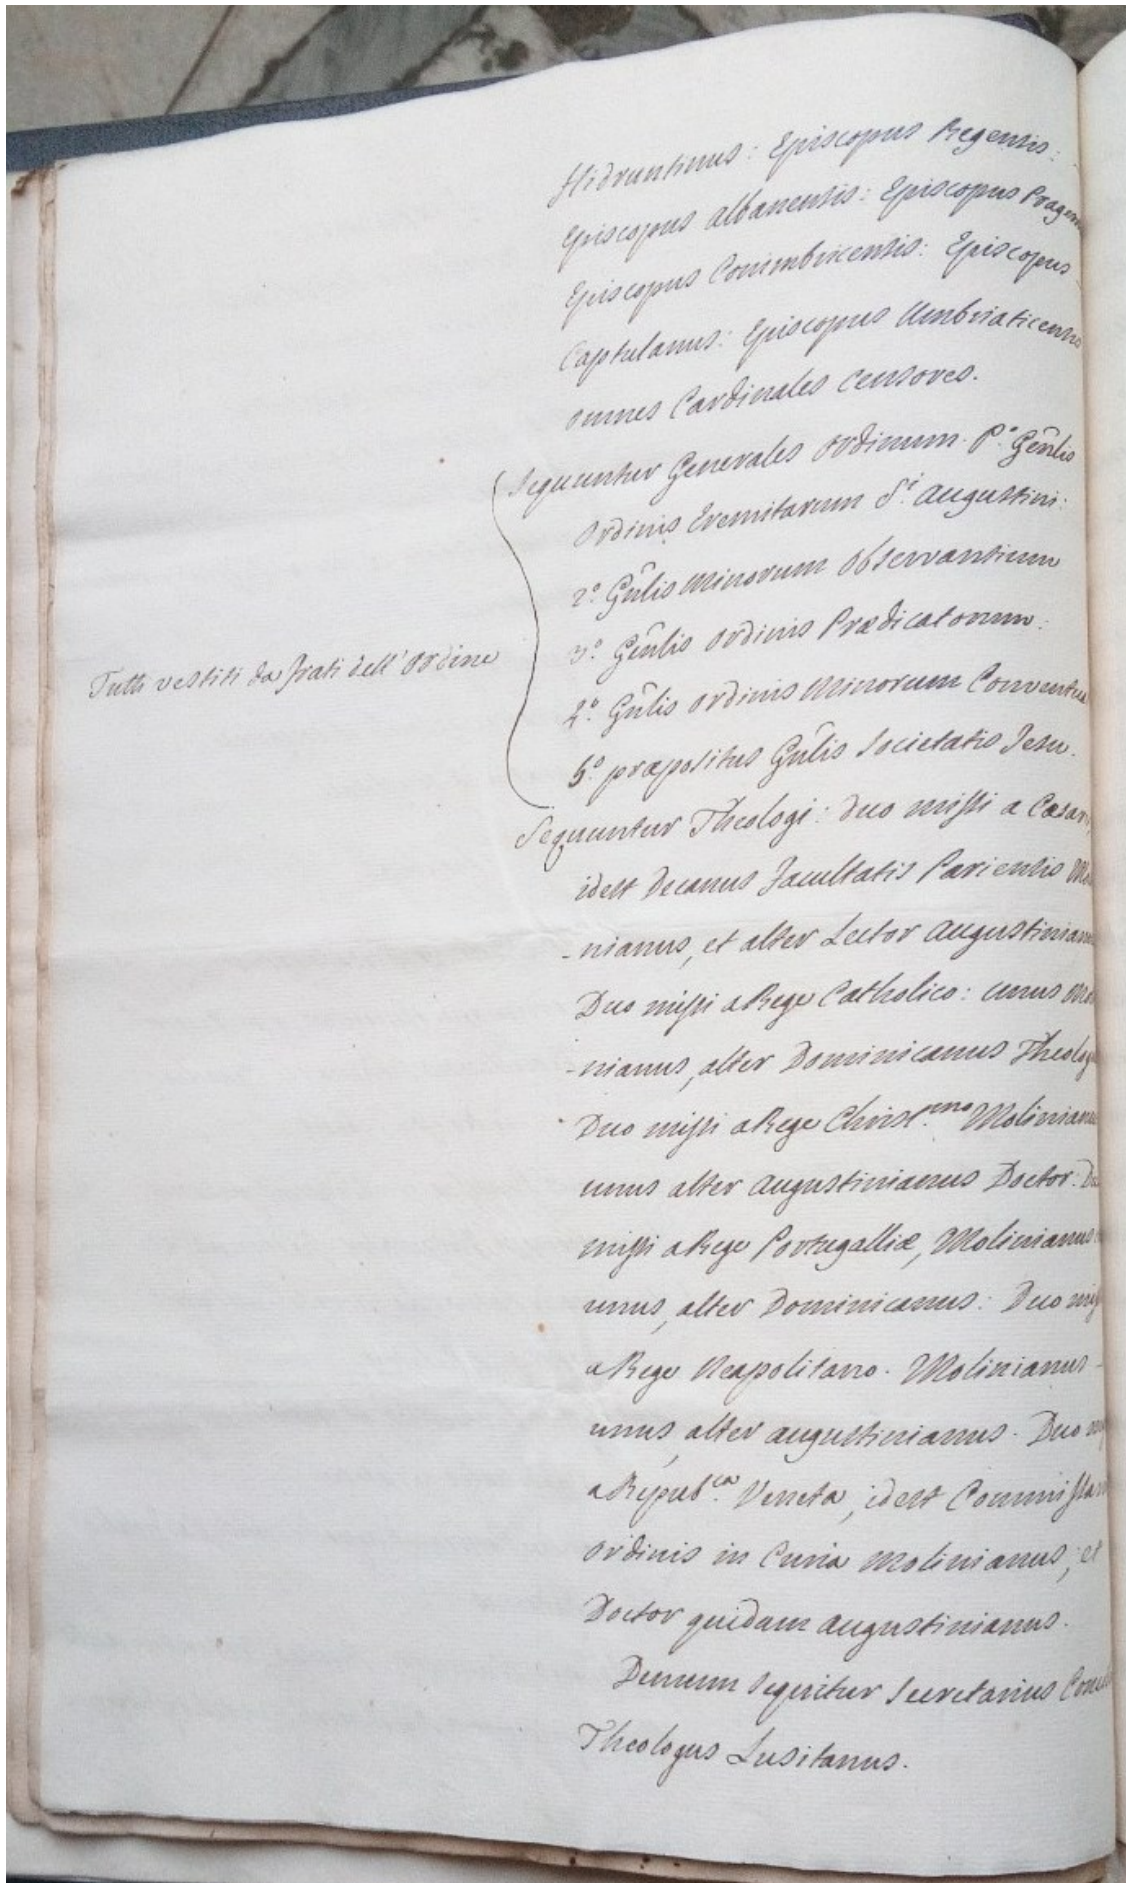 Hidruntinus: Episcopus Regensis:
Episcopus Albanensis: Episcopus Pragen
Episcopus Conimbricensis: Episcopus
Captulanus: Episcopus Umbriaticensis
omnes Cardinales Censores.
Sequuntur Generales Ordinum. P.º Gĕnlis
Ordinis Eremitarum S.ⁱ Augustini:
2º. Gñlis Minorum Observantium
3º. Gĕnlis Ordinis Prædicatorum:
Tutti vestiti da frati dell' Ordine
4º. Gñlis Ordinis Minorum Conventua
5º. præpositus Gñlis Societatis Jesu.
Sequuntur Theologi: duo missi a Cæsar
idest Decanus Facultatis Pariensis Mo
-nianus, et alter Lector Augustinian
Duo missi a Rege Catholico: unus Mo
-nianus, alter Dominicanus Theolog
Duo missi a Rege Christ.mo Molinianu
unus alter Augustinianus Doctor: Du
missi a Rege Portugalliæ, Molinianus
unus, alter Dominicanus: Duo miss
a Rege Neapolitano. Molinianus -
unus, alter Augustinianus. Duo m
a Repub.ca Veneta, idest Commissar
Ordinis in Curia Molinianus; et
Doctor quidam Augustinianus.
Demum sequitur Secretarius Conci
Theologus Lusitanus.